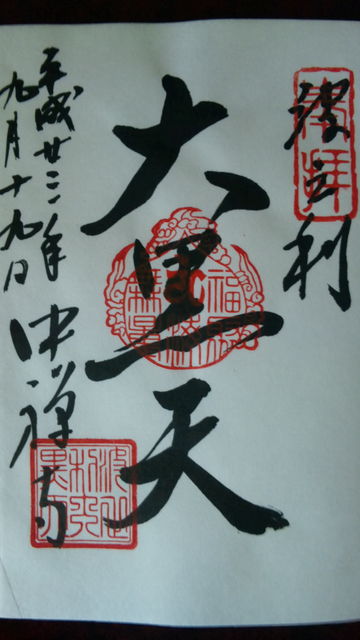 奉拝
波之利
大黒天
平成廿二年
九月十九日
中禅寺